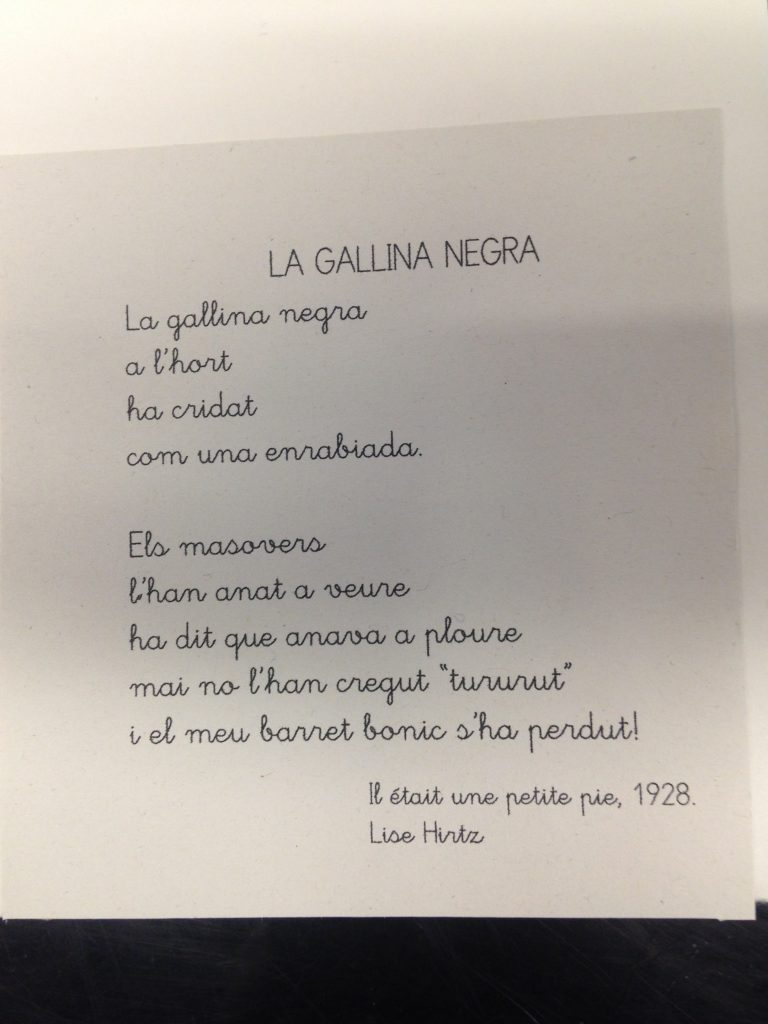 LA GALLINA NEGRA
La gallina negra
a l'hort
ha cridat
com una enrabiada.
Els masovers
l'han anat a veure
ha dit que anava a ploure
mai no l'han cregut "tururut"
i el meu barret bonic s'ha perdut!
Il était une petite pie, 1928.
Lise Hirtz